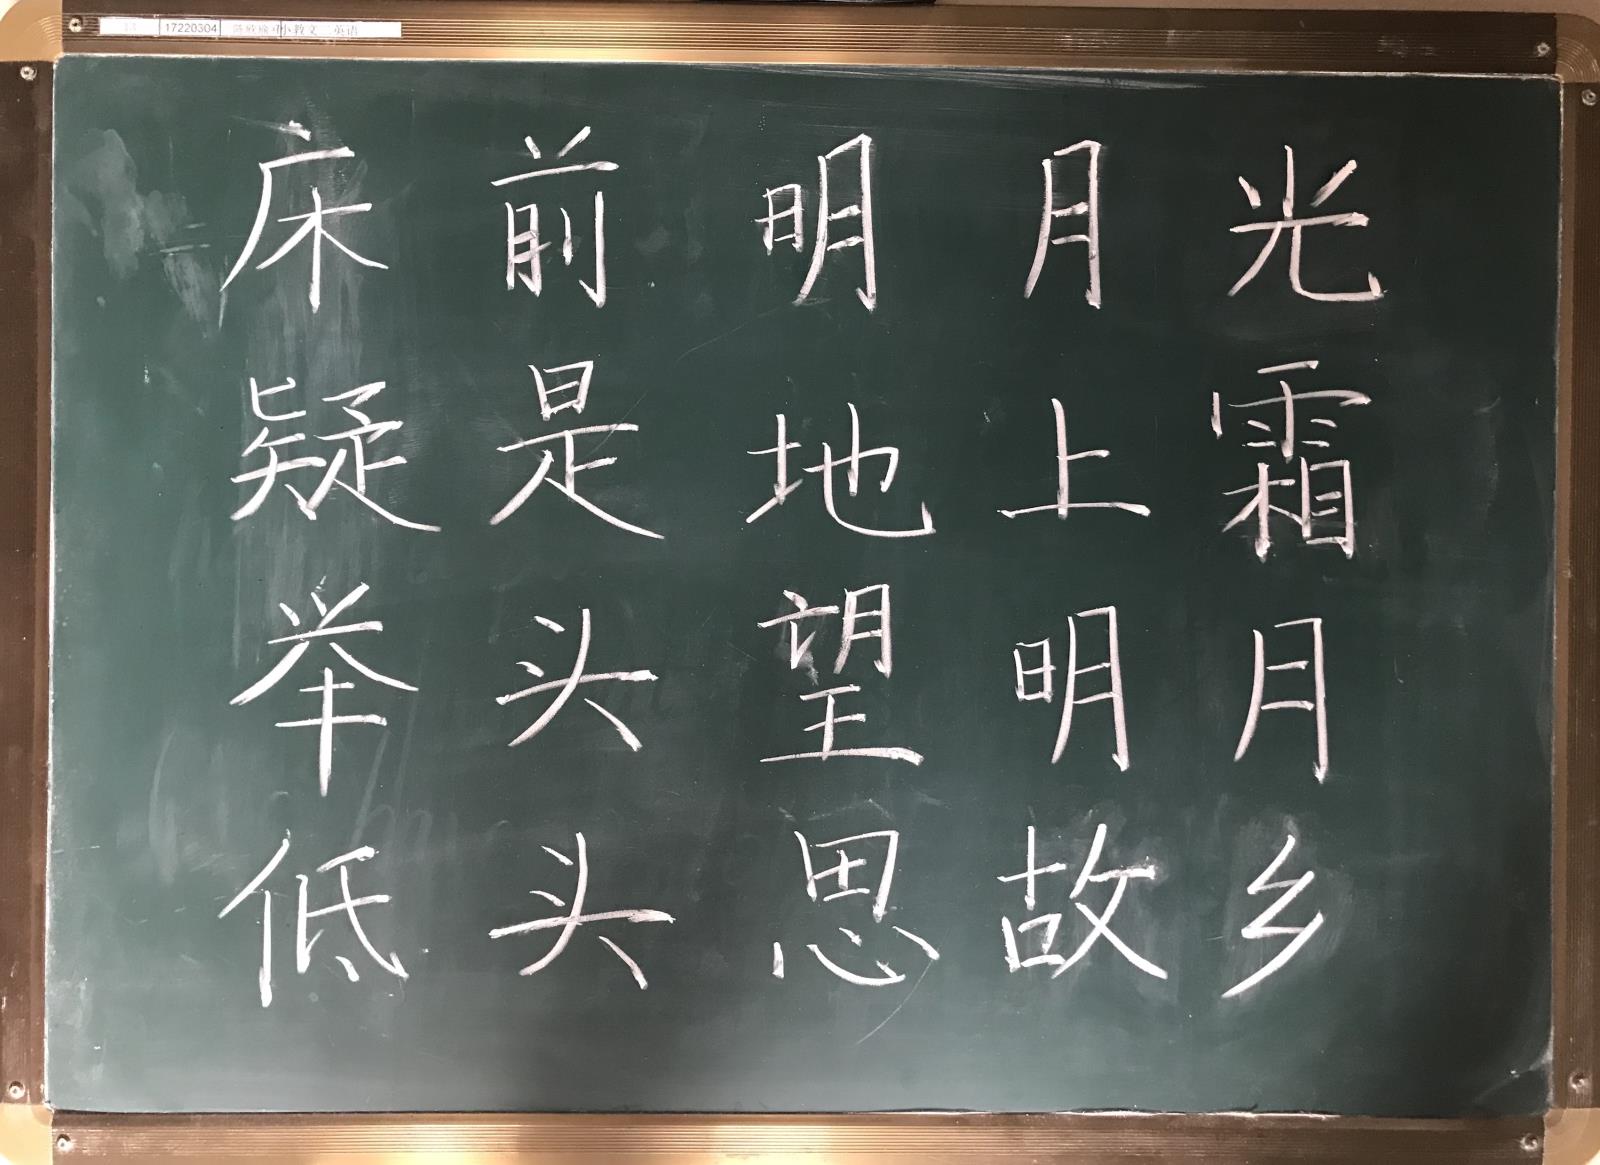 17220304
床前明月光
疑是地上霜
举头望明月
低头思故乡